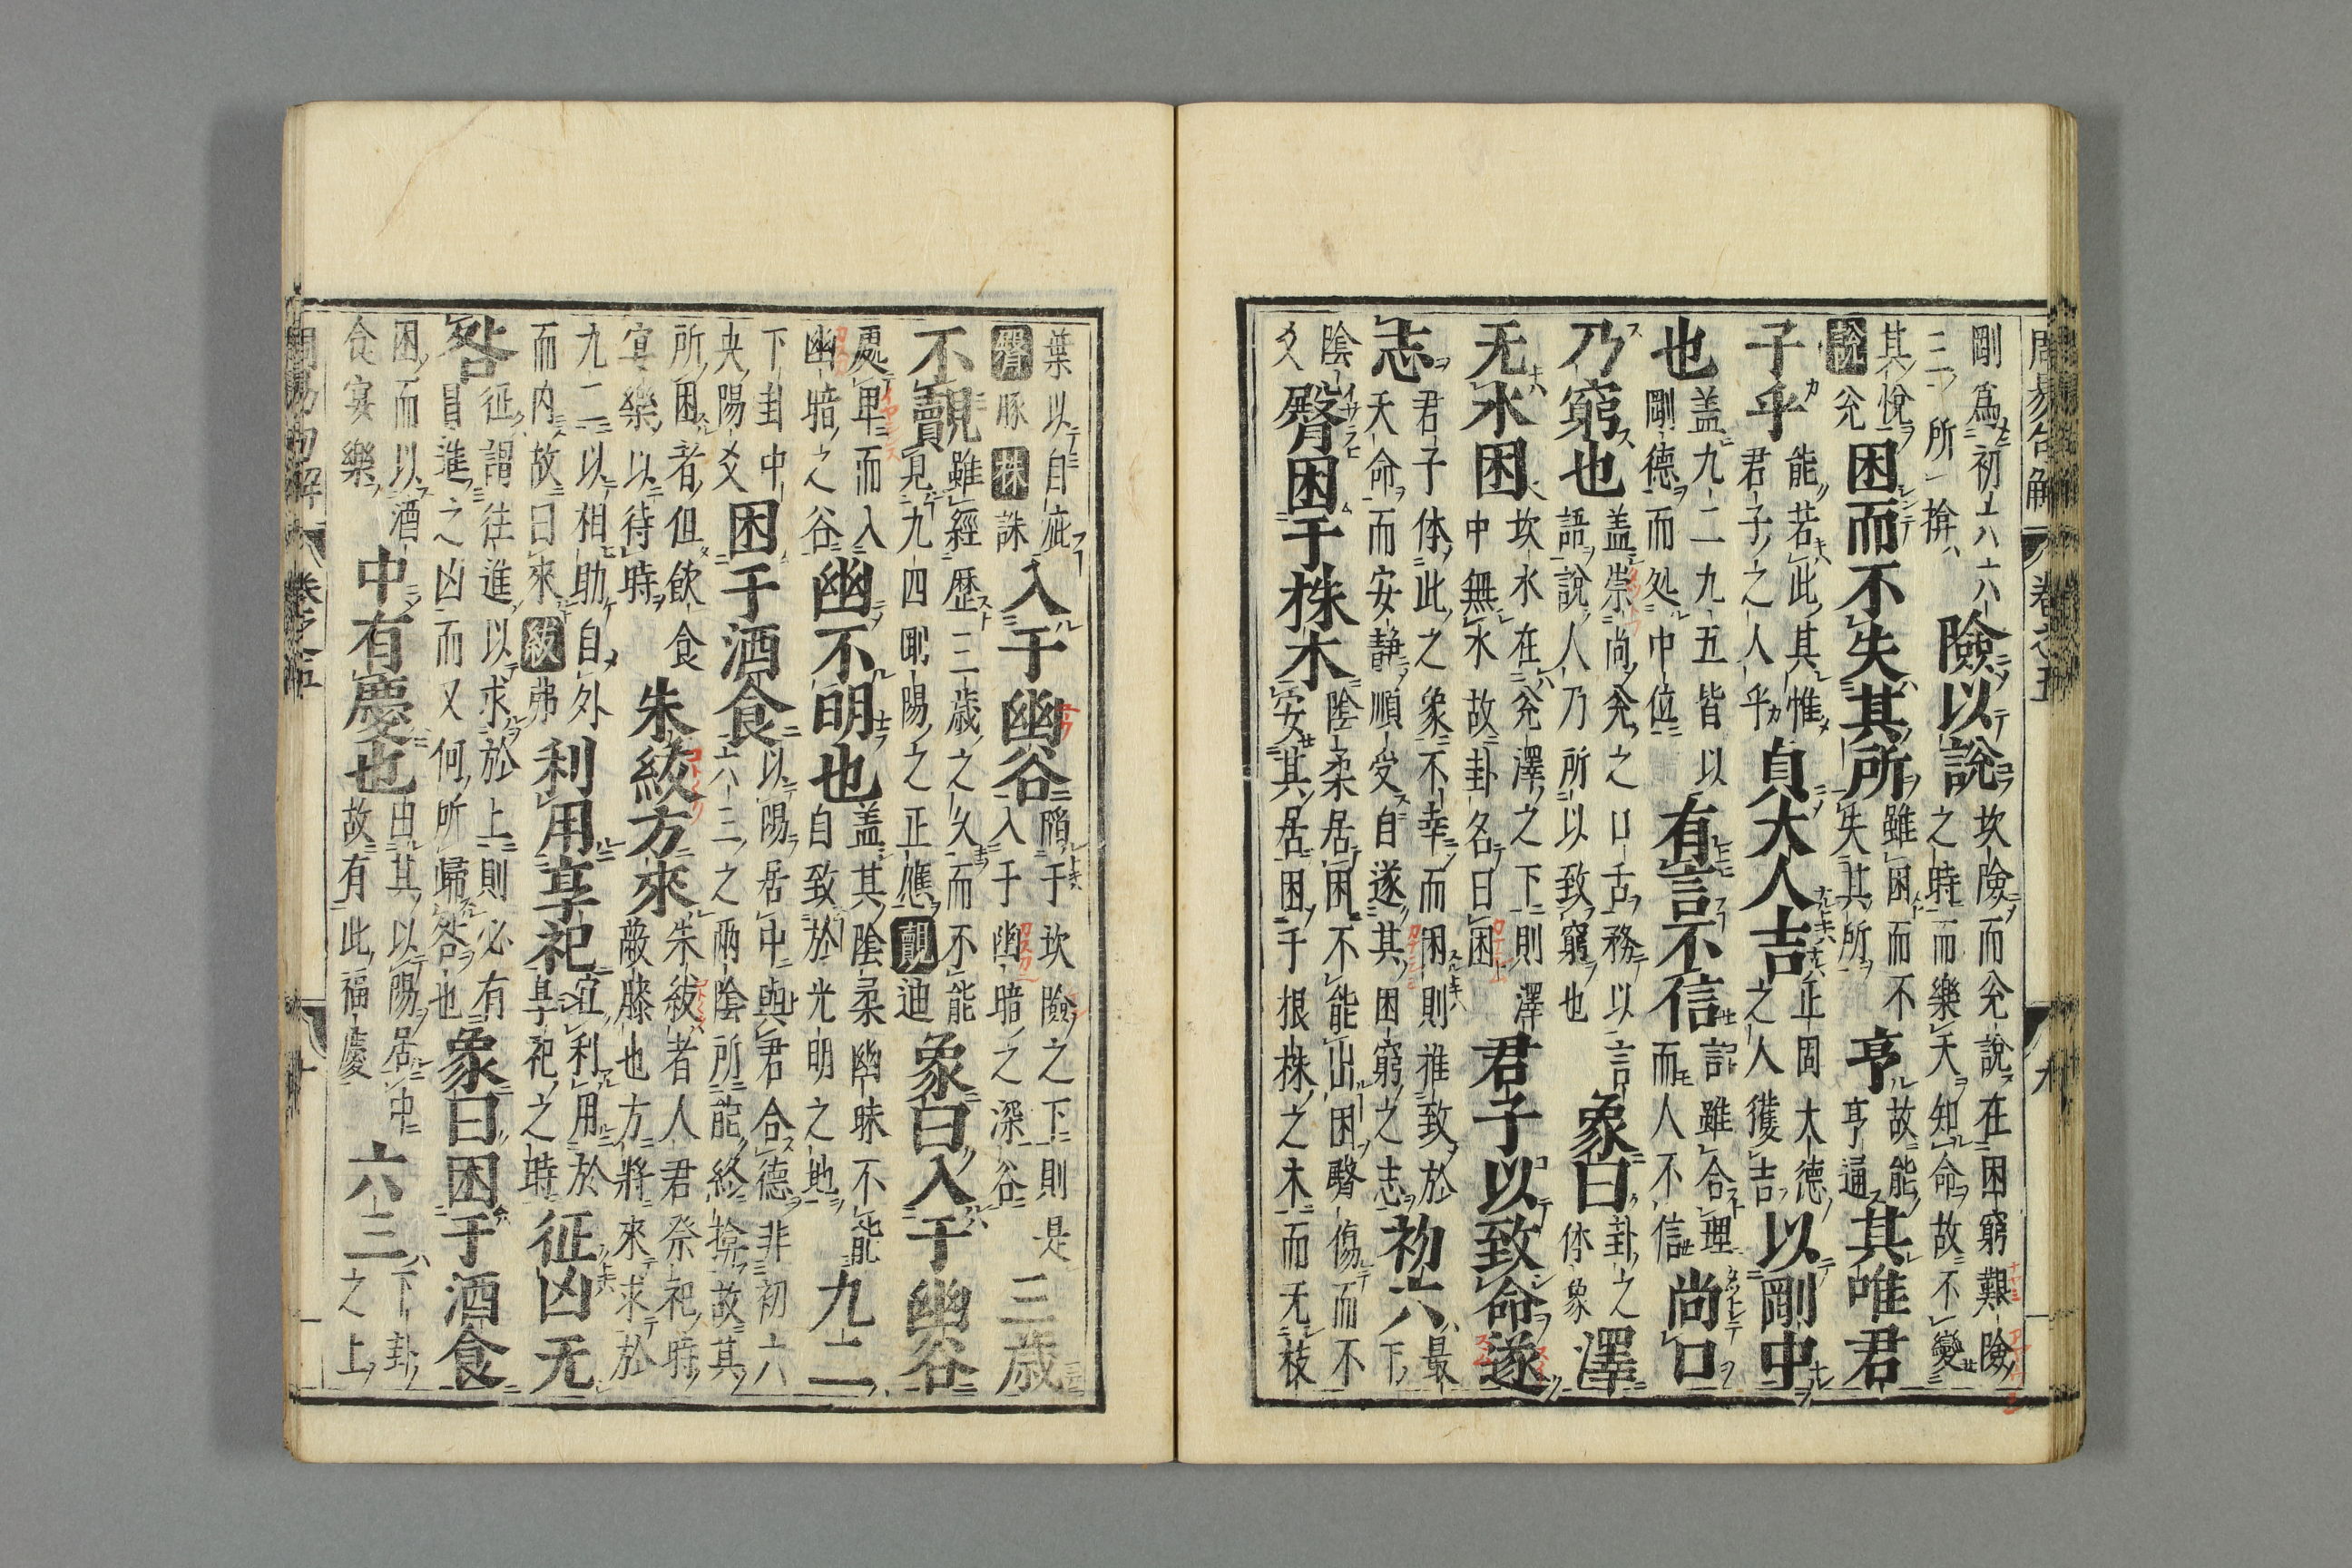 周易句解 卷之五 九
剛爲初上八六三所揜險以說坎險而兊說在困窮艱險之時而樂天知命故不變
其悅說兊困而不失其所雖困而不失其所亨故能亨通其唯君
子乎能若此其惟君子之人乎貞大人吉正固大德之人獲吉以剛中
也盖九二九五皆以剛德而処中位有言不信言雖合理而人不信尚口
乃窮也盖崇尚兊之口舌務以言語說人乃所以致窮也象曰卦之体象澤
无水困坎水在兊澤之下則澤中無水故卦名曰困君子以致命遂
志君子体此之象不幸而困則推致於天命而安静順受自遂其困窮之志初六最下
陰爻臀困于株木陰柔居困不能出困臀傷而不安其居困于根株之木而无枝
葉以自庇臀豚株誅入于幽谷隠于坎險之下則是入于幽暗之深谷三歳
不覿雖經歴三歳之久而不能見九四剛陽之正應覿迪象曰入于幽谷
處卑而入幽暗之谷幽不明也盖其陰柔幽昧不能自致於光明之地九二
下卦中央陽爻困于酒食以陽居中與君合德非初六六三之兩陰所能終揜故其
所困者但飲食宜樂以待時朱紱方來朱紱者人君祭祀時蔽膝也方將來求於
九二以相助自外而内故曰來紱弗利用享祀宜利用於享祀之時征凶无
咎征謂往進以求於上則必有冒進之凶而又何所歸咎也象曰困于酒食
困而以酒食宴樂中有慶也由其以陽居中故有此福慶六三下卦之上
周易句解 卷之五 十